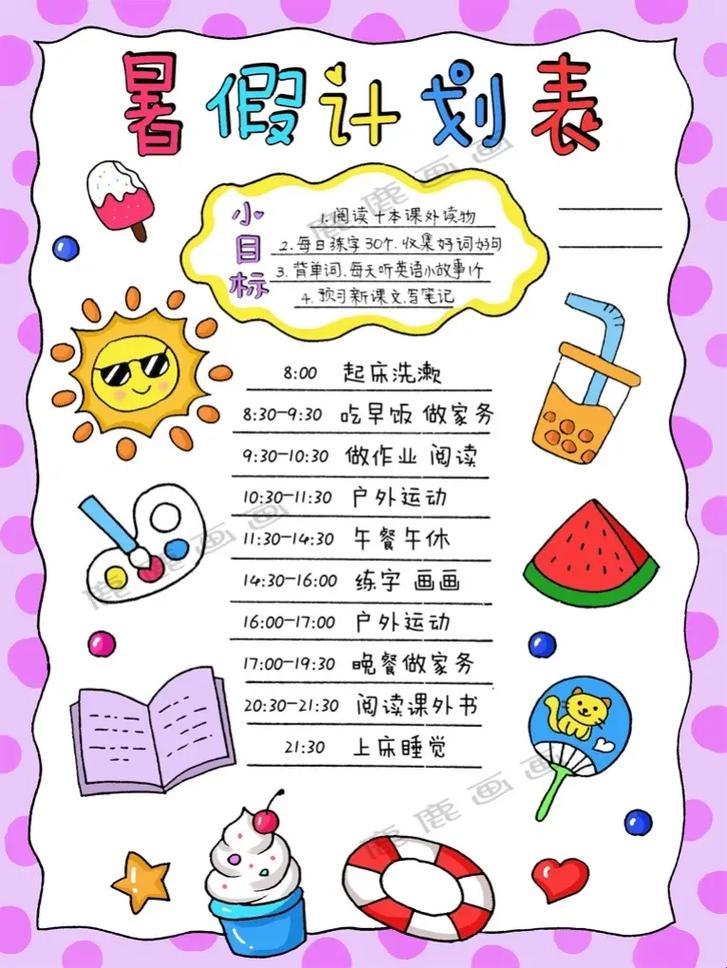 暑假计划表
小目标
1.阅读十本课外读物
2.每日练字30个.收集好词好句
3.背单词.每天听英语小故事1个
4.预习新课文.写笔记
8:00 起床洗漱
8:30-9:30 吃早饭 做家务
9:30-10:30 做作业 阅读
10:30-11:30 户外运动
11:30-14:30 午餐午休
14:30-16:00 练字 画画
16:00-17:00 户外运动
17:00-19:30 晚餐做家务
20:30-21:30 阅读课外书
21:30 上床睡觉
鹿鹿画画
鹿鹿画画
鹿鹿画画